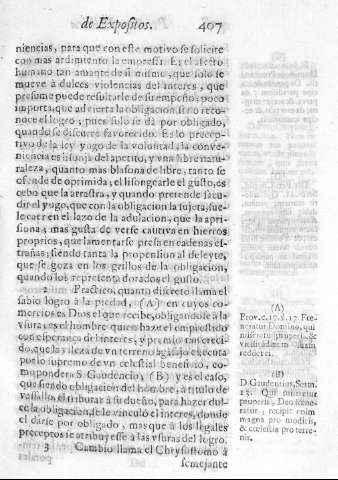 de Expositos. 407
niencias, para que con este motivo se solicite
con mas ardimiento la empressa. Es el afecto
humano tan amante de si mismo, que solo se
mueve à dulces violencias del interes, que
presume puede resultarle de su empeño; poco
importa, que advierta la obligacion, si no reco-
noce el logro; pues solo se dà por obligado,
quando se discurre favorecido. Es lo precep-
tivo de la ley yugo de la voluntad, la conve-
niencia es lisonja del apetito, y vna libre natu-
raleza, quanto mas blasona de libre, tanto se
ofende de oprimida, el lisongearle el gusto, es
cebo que la arrastra, y quando pretende sacu-
dir el yugo, que con la obligacion la sujeta, sue-
le caer en el lazo de la adulacion, que la apri-
siona; mas gusta de verse cautiva en hierros
proprios, que lamentarse presa en cadenas es-
trañas, siendo tanta la propension al deleyte,
que se goza en los grillos de la obligacion,
quando los representa dorados el gusto.
2 Practico, quanto discreto llama el
sabio logro à la piedad, (A) en cuyos co-
mercios es Dios el que recibe, obligandole à la
vsura; es el hombre quien haze el emprestido
con esperança del interes, y premio tan creci-
do, que la vileza de vn terreno agasajo executa
por lo supremo de vn celestial beneficio, co-
mo pondera S. Gaudencio, (B) y es el caso,
que siendo obligacion del hombre, à titulo de
vassallo, el tributar à su dueño, para hazer dul-
ce la obligacion, le vinculò el interes, donde
el darse por obligado, mas que à los legales
preceptos se atribuyesse à las vsuras del logro.
3 Cambio llama el Chrysostomo à
semejante
(A)
Prov. c. 19. v. 17. Fœ-
neratur Domino, qui
miseretur pauperis, &
vicissitudinem suam
reddet ei.
(B)
D. Gaudentius, Serm.
13. Qui miseretur
pauperis, Deo fœne-
ratur; recipit enim
magna pro modicis,
& cœlestia pro terre-
nis.